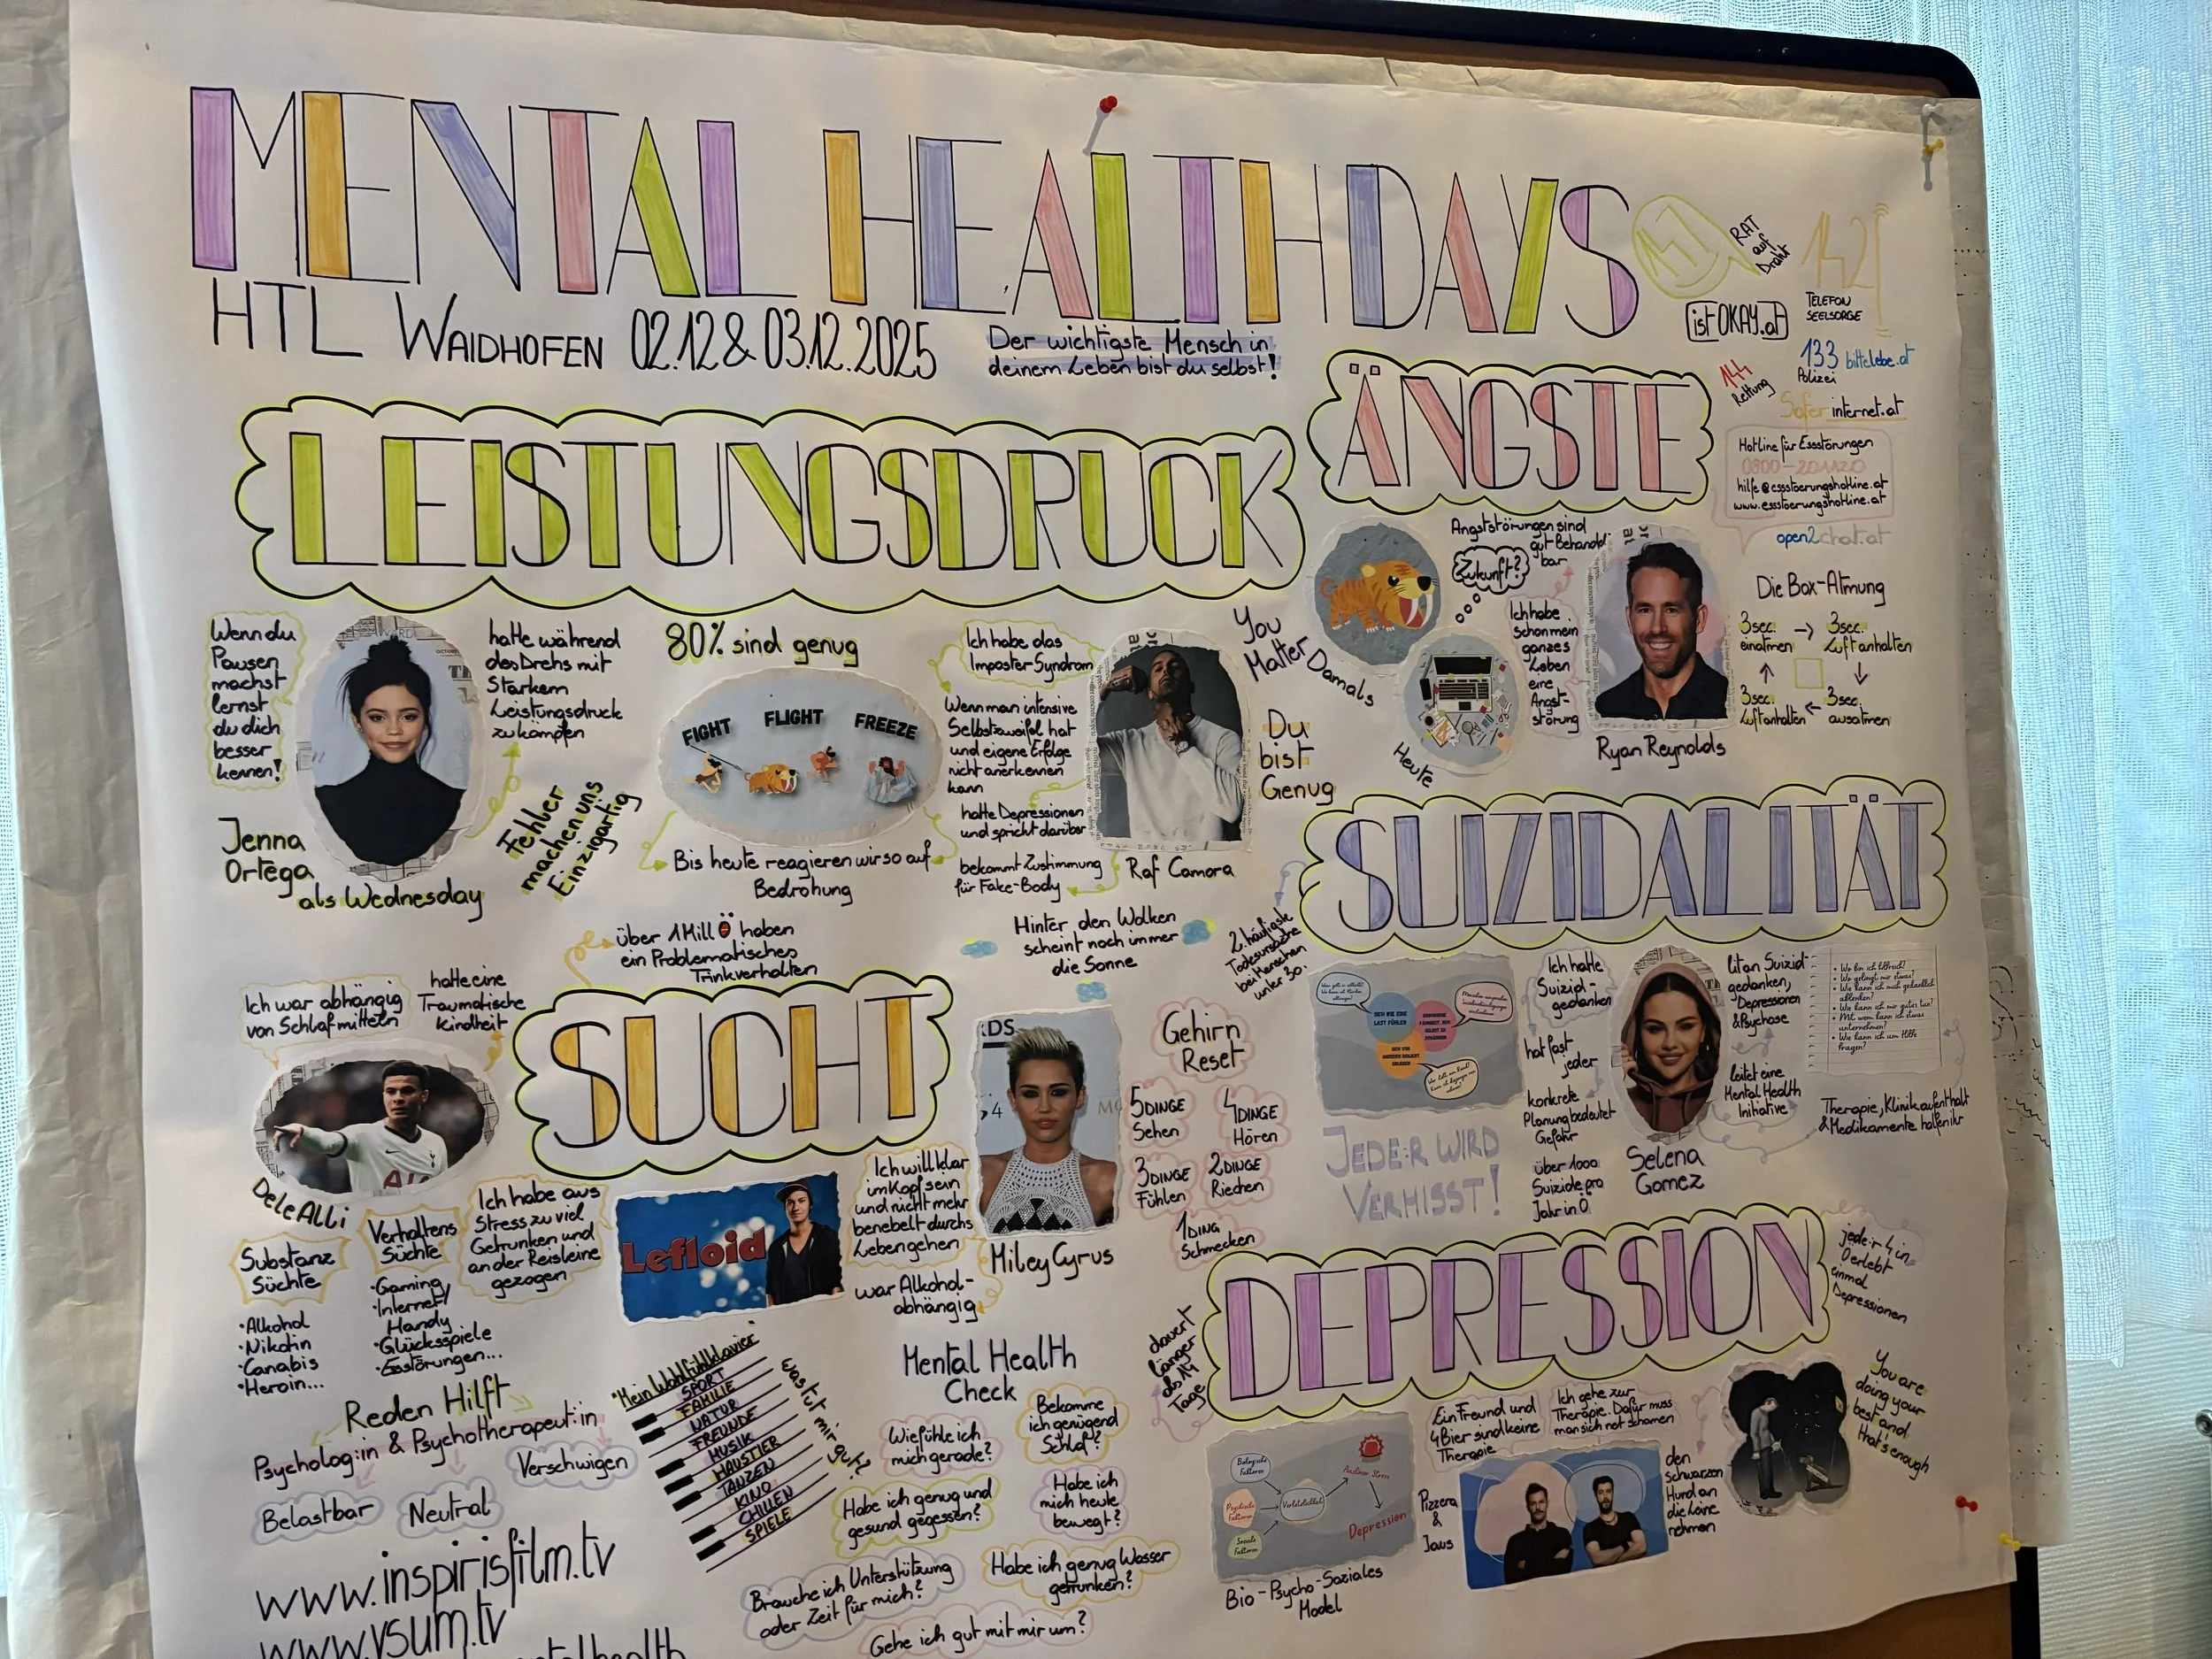 MENTAL HEALTH DAYS
HTL WAIDHOFEN 02.12 & 03.12.2025
Der wichtigste Mensch in
deinem Leben bist du selbst!
147
RAT
auf
Draht
142
TELEFON
SEELSORGE
istOKAY.at
133 bittelebe.at
Polizei
144
Rettung
Saferinternet.at
Hotline für Essstörungen
0800-201120
hilfe@essstoerungshotline.at
www.essstoerungshotline.at
open2chat.at
LEISTUNGSDRUCK
Wenn du
Pausen
machst
lernst
du dich
besser
kennen!
hatte während
des Drehs mit
Starkem
Leistungsdruck
zu kämpfen
Jenna
Ortega
als Wednesday
Fehler
machen uns
Einzigartig
80% sind genug
FIGHT FLIGHT FREEZE
Bis heute reagieren wir so auf
Bedrohung
Ich habe das
Imposter Syndrom
Wenn man intensive
Selbstzweifel hat
und eigene Erfolge
nicht anerkennen
kann
hatte Depressionen
und spricht darüber
bekommt Zustimmung
für Fake-Body
Raf Camora
You
Matter
Du
bist
Genug
Hinter den Wolken
scheint noch immer
die Sonne
ÄNGSTE
Angststörungen sind
gut Behandel
bar
Zukunft?
Damals
Heute
Ich habe
schon mein
ganzes
Leben
eine
Angst-
störung
Ryan Reynolds
Die Box-Atmung
3sec. einatmen → 3sec. Luft anhalten
3sec. Luft anhalten ← 3sec. ausatmen
SUIZIDALITÄT
2. häufigste
Todesursache
bei Menschen
unter 30.
SICH WIE EINE
LAST FÜHLEN
Ich hatte
Suizid-
gedanken
hat fast
jeder
konkrete
Planung bedeutet
Gefahr
über 1000
Suizide pro
Jahr in Ö.
JEDE:R WIRD
VERMISST!
Selena
Gomez
litt an Suizid-
gedanken,
Depressionen
& Psychose
leitet eine
Mental Health
Initiative
• Wo bin ich hilfreich?
• Wo gelingt mir etwas?
• Wie kann ich mich gedanklich
ablenken?
• Wie kann ich mir gutes tun?
• Mit wem kann ich etwas
unternehmen?
• Wie kann ich um Hilfe
fragen?
Therapie, Klinikaufenthalt
& Medikamente halfen ihr
SUCHT
über 1 Mill Ö haben
ein Problematisches
Trinkverhalten
Ich war abhängig
von Schlafmitteln
hatte eine
Traumatische
Kindheit
Dele Alli
Substanz
Süchte
• Alkohol
• Nikotin
• Canabis
• Heroin...
Verhaltens
Süchte
• Gaming
• Internet/
Handy
• Glücksspiele
• Essstörungen...
Ich habe aus
Stress zu viel
Getrunken und
an der Reisleine
gezogen
Lefloid
Ich will klar
im Kopf sein
und nicht mehr
benebelt durchs
Leben gehen
war Alkohol-
abhängig
Miley Cyrus
Gehirn
Reset
5 DINGE
Sehen
4 DINGE
Hören
3 DINGE
Fühlen
2 DINGE
Riechen
1 DING
Schmecken
Reden Hilft
Psycholog:in & Psychotherapeut:in
Belastbar
Neutral
Verschwigen
www.inspirisfilm.tv
www.vsum.tv
"Mein Wohlfühlklavier"
SPORT
FAMILIE
NATUR
FREUNDE
MUSIK
HAUSTIER
TANZEN
KINO
CHILLEN
SPIELE
was tut mir gut?
Mental Health
Check
Wie fühle ich
mich gerade?
Bekomme
ich genügend
Schlaf?
Habe ich genug und
gesund gegessen?
Habe ich
mich heute
bewegt?
Brauche ich Unterstützung
oder Zeit für mich?
Habe ich genug Wasser
getrunken?
Gehe ich gut mit mir um?
DEPRESSION
dauert
länger
als 14
Tage
jede:r 4 in
Ö erlebt
einmal
Depressionen
Biologische
Faktoren
Psychische
Faktoren
Soziale
Faktoren
Verletzlichkeit
Auslöser Stress
Depression
Bio-Psycho-Soziales
Model
Ein Freund und
4 Bier sind keine
Therapie
Ich gehe zur
Therapie. Dafür muss
man sich not schämen
Pizzera
&
Jaus
den
schwarzen
Hund an
die Leine
nehmen
You are
doing your
best and
that's enough